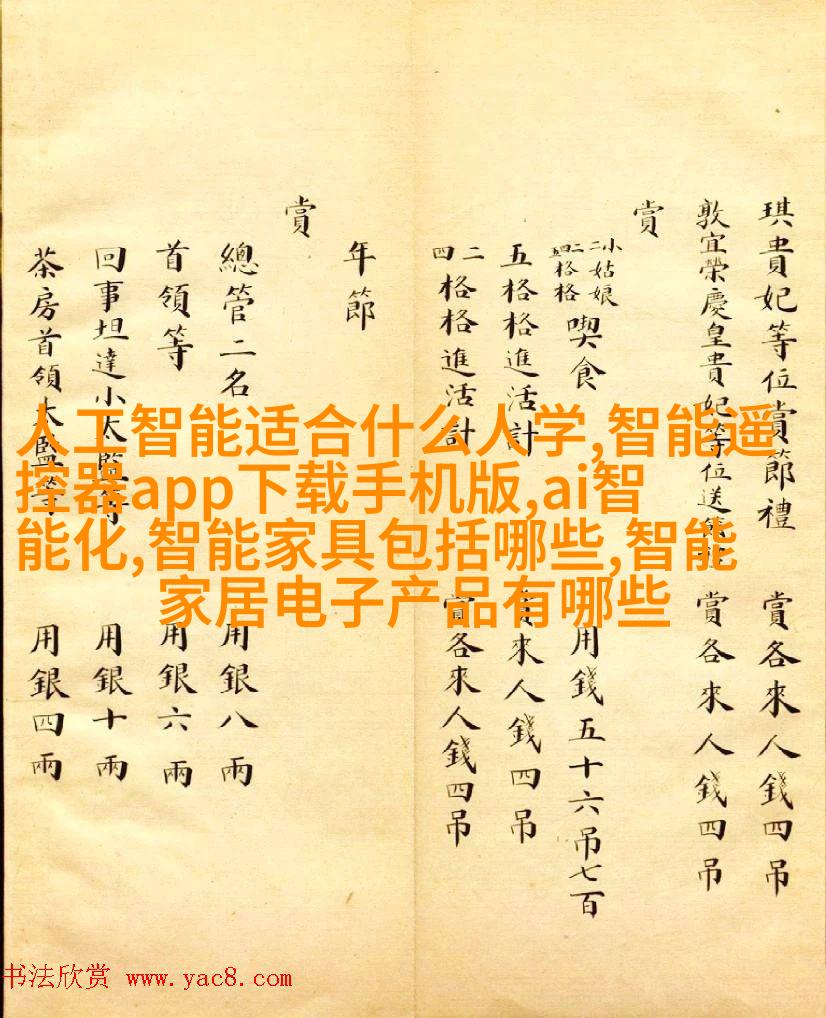 琪貴妃等位賞節禮 賞各來人錢四吊
敦宜榮慶皇貴妃等位送節禮 賞各來人錢四吊
賞
小姑娘 格格 喫食 用錢五十六吊七百
五格格進活計 賞各來人錢四吊
二四格格進活計 賞各來人錢四吊
年節
賞
總管二名 用銀八兩
首領等 用銀六兩
回事坦達小太監等 用銀十兩
茶房首領太監等 用銀四兩
人工智能适合什么人学,智能遥
控器app下载手机版,ai智
能化,智能家具包括哪些,智能
家居电子产品有哪些
书法欣赏 www.yac8.com